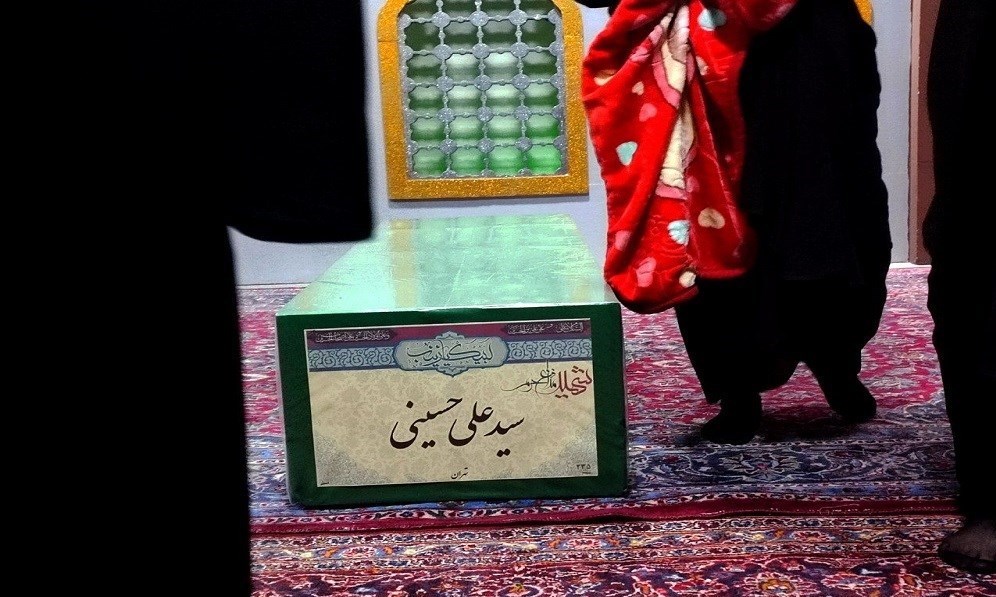 لبیک یا زینب
شهید مدافع حرم
سید علی حسینی
تهران
۲۳۵